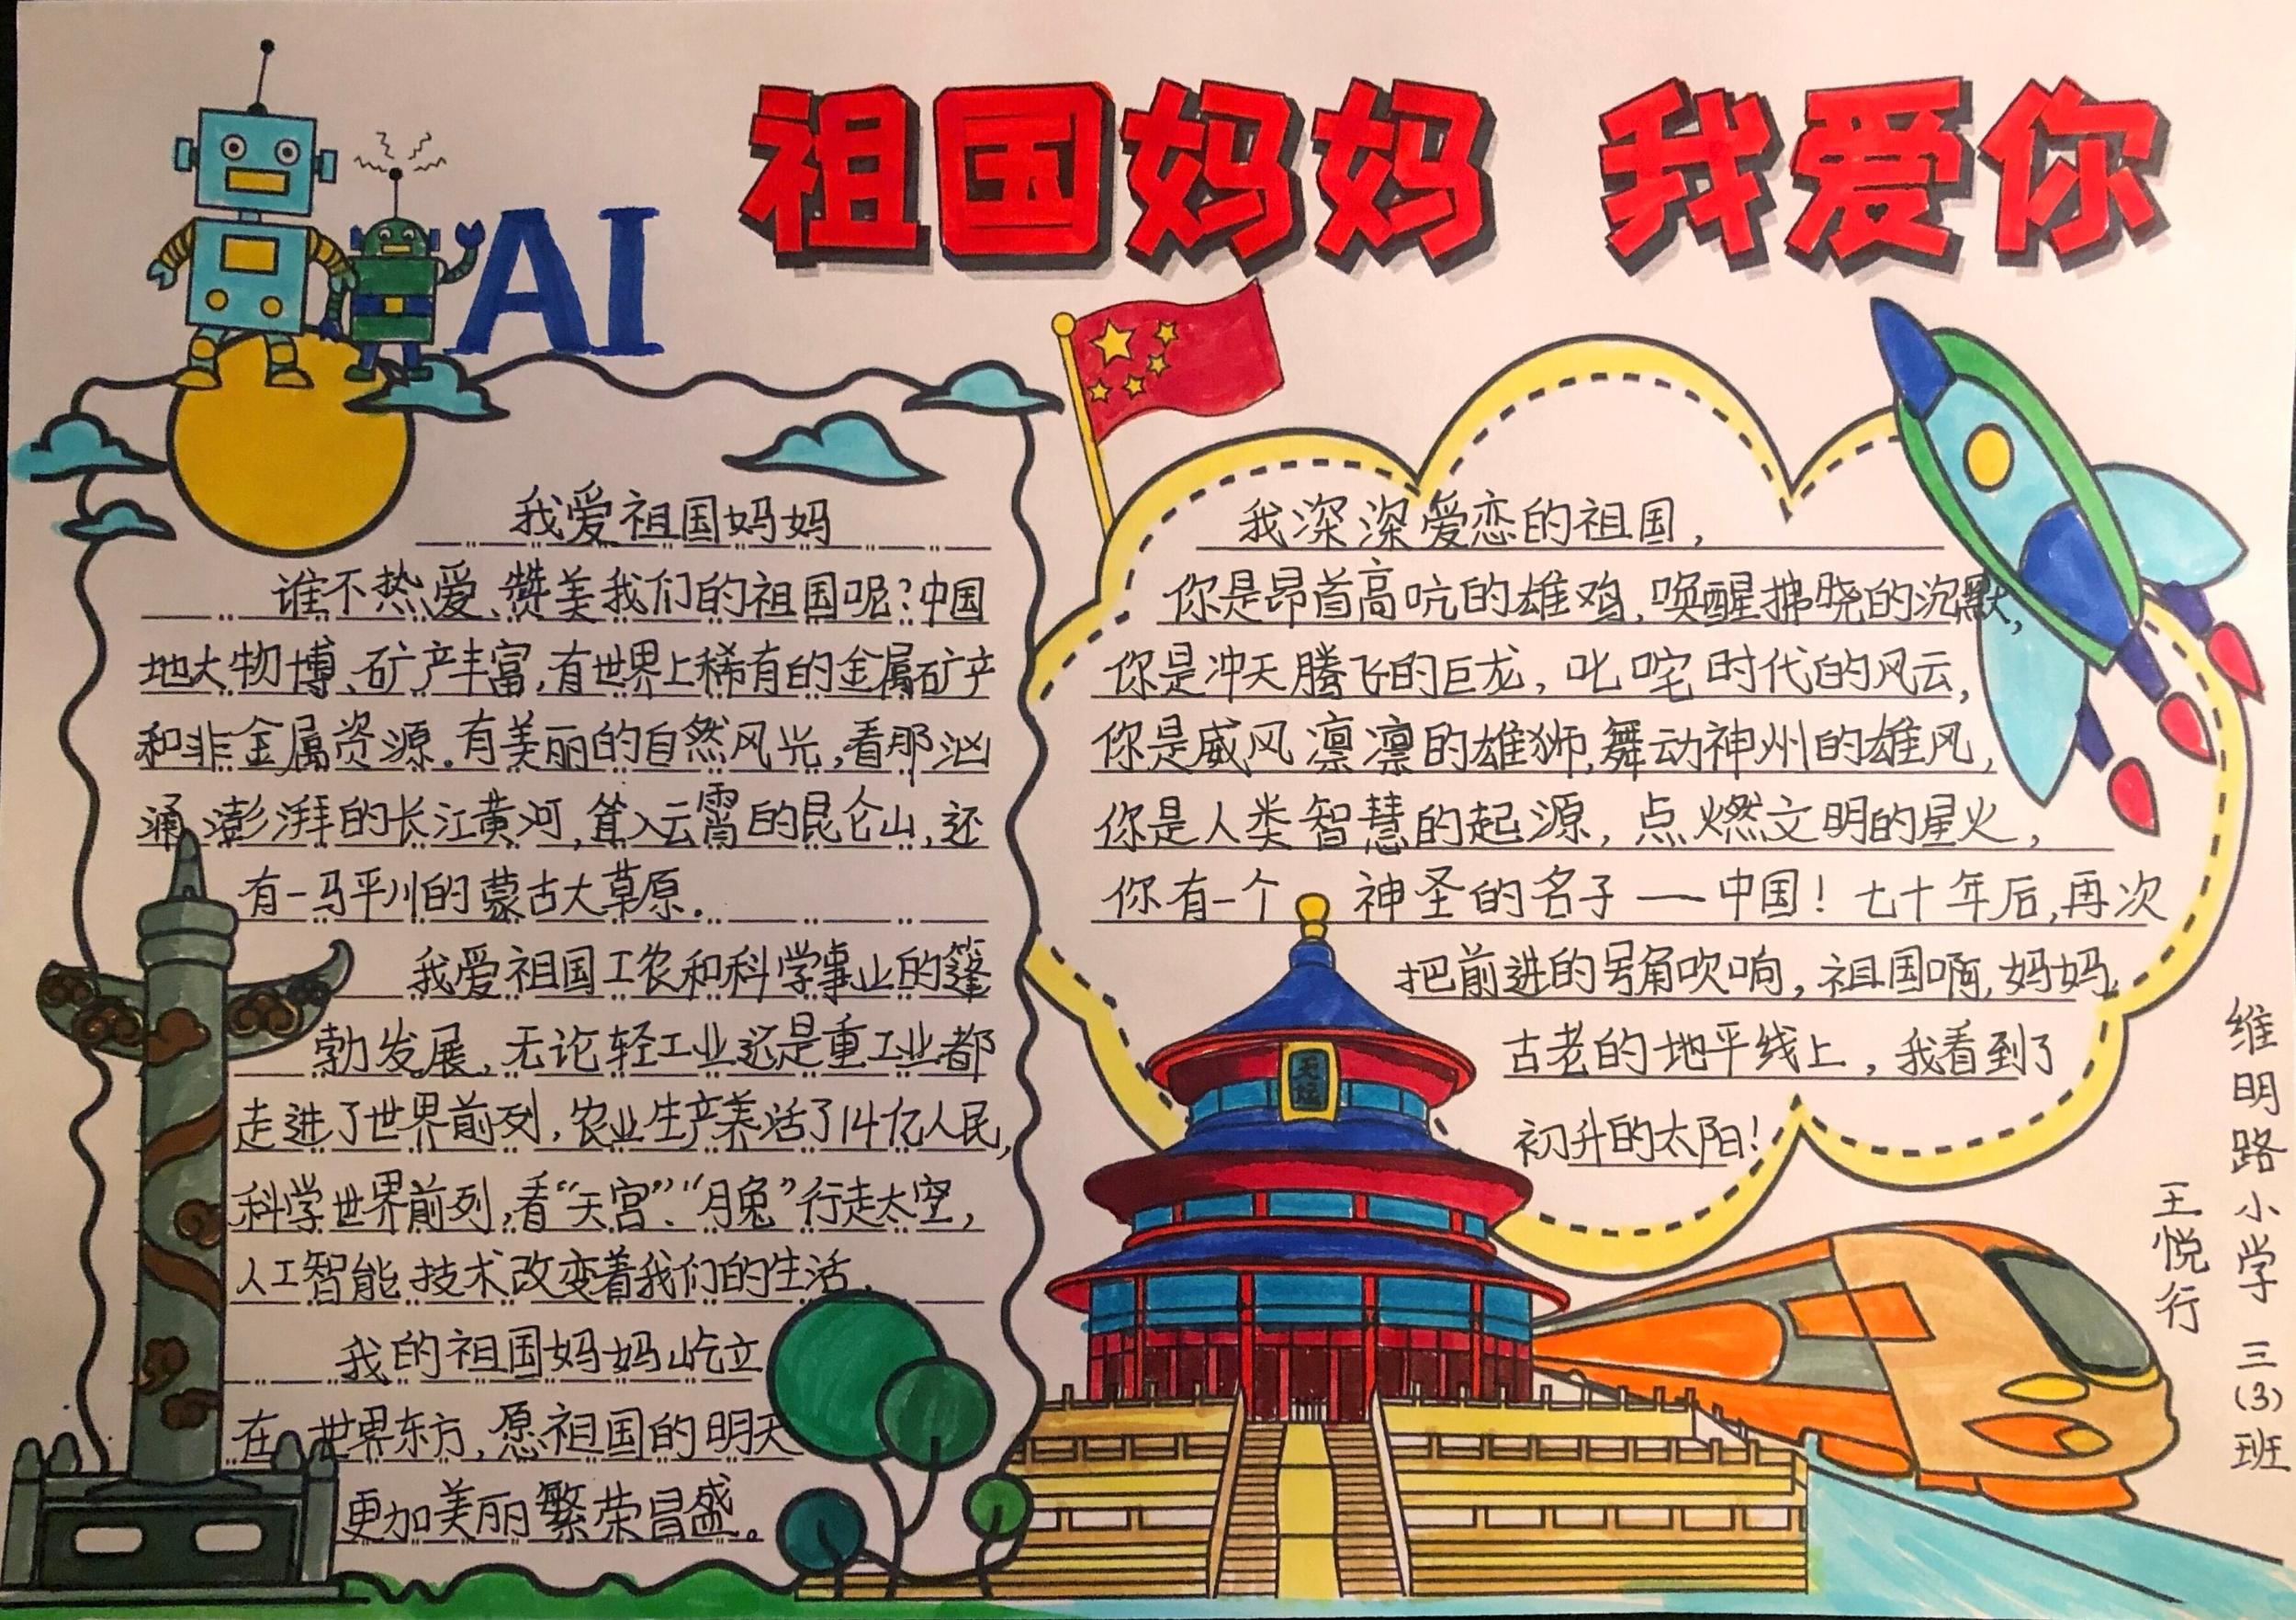 祖国妈妈 我爱你
AI
我爱祖国妈妈
谁不热爱、赞美我们的祖国呢?中国
地大物博、矿产丰富,有世界上稀有的金属矿产
和非金属资源。有美丽的自然风光,看那汹
涌澎湃的长江黄河,耸入云霄的昆仑山,还
有一马平川的蒙古大草原。
我爱祖国工农和科学事业的篷
勃发展,无论轻工业还是重工业都
走进了世界前列,农业生产养活了14亿人民,
科学世界前列,看“天宫”、“月兔”行走太空,
人工智能技术改变着我们的生活.
我的祖国妈妈屹立
在世界东方,愿祖国的明天
更加美丽繁荣昌盛。
我深深爱恋的祖国,
你是昂首高吭的雄鸡,唤醒拂晓的沉默,
你是冲天腾飞的巨龙,叱咤时代的风云,
你是威风凛凛的雄狮,舞动神州的雄风,
你是人类智慧的起源,点燃文明的星火,
你有一个 神圣的名子—中国!七十年后,再次
把前进的号角吹响,祖国啊,妈妈,
古老的地平线上,我看到了
初升的太阳!
天坛
维明路小学 三(3)班
王悦行